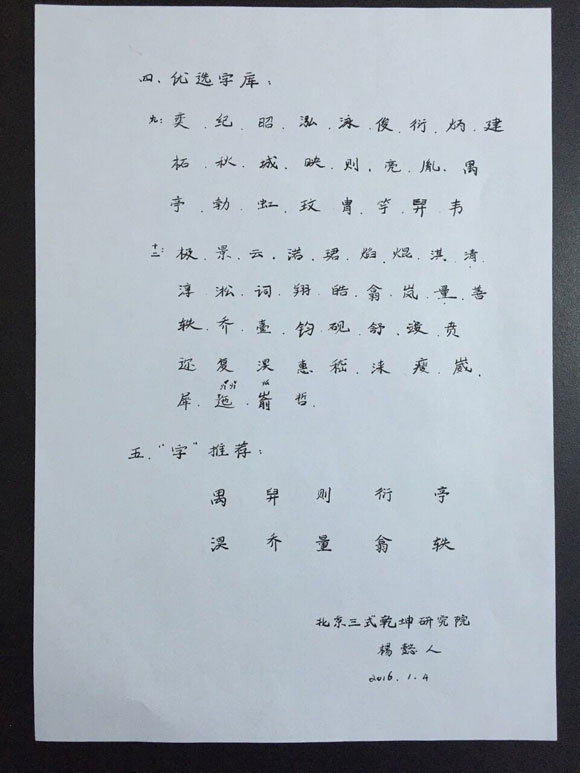 四.优选字库:
九: 奕.纪.昭.泓.泳.俊.衍.炳.建
柘.秋.城.映.则.亮.胤.禺
亭.勃.虹.玟.胄.竽.羿.韦
十二: 极.景.云.浩.珺.焰.焜.淇.清.
淳.淞.词.翔.皓.翕.岚.量.善
轶.乔.壹.钧.砚.舒.竣.贲
迩 复 淏 惠 嵇 涞 瘦 崴.
犀.迤.嵛 哲.
五."字"推荐:
禺 羿 则 衍 亭
淏 乔 量 翕 轶
北京三式乾坤研究院
杨懿人
2016.1.4